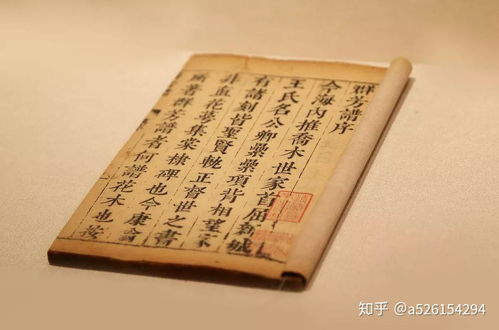 群芳譜序
今海內推喬木世家首屈新城
王氏名公卿纍纍項背相望家
有譜刻皆聖賢軌正督世之書
非直花萼集棠棣碑也今康侖
所著群芳譜者何譜花木也按
知乎 @a526154294